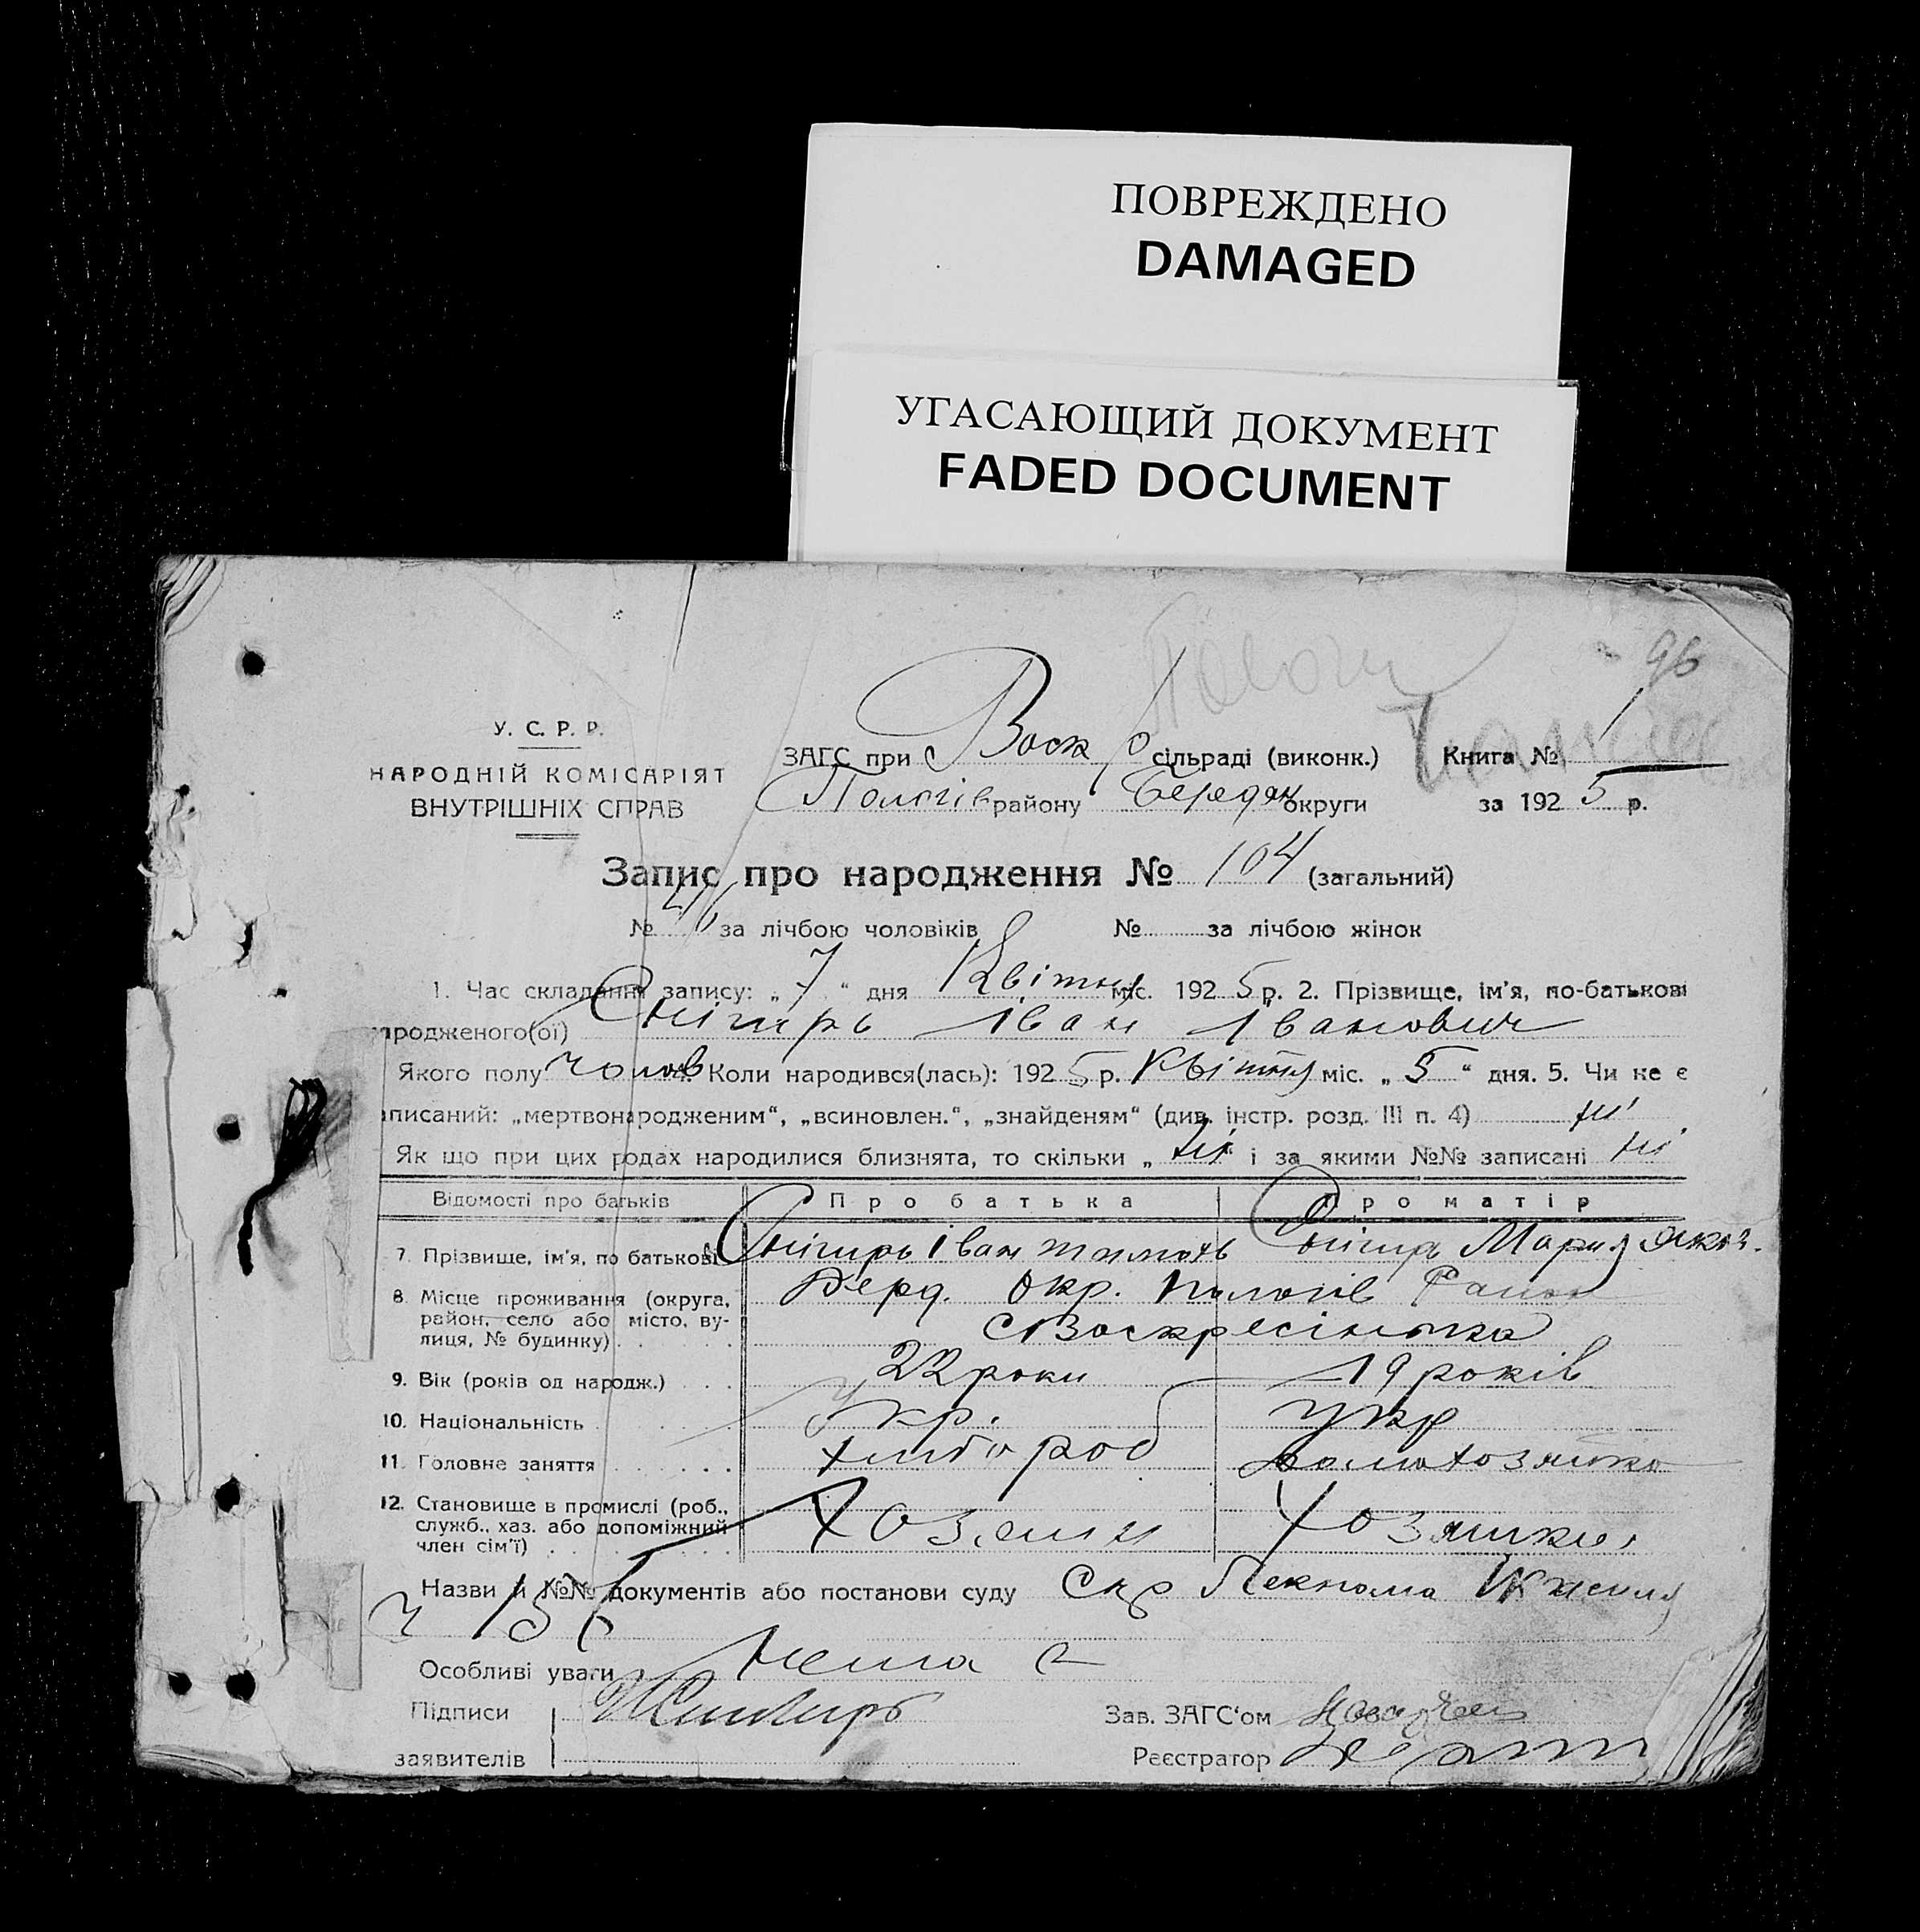 ПОВРЕЖДЕНО
DAMAGED
УГАСАЮЩИЙ ДОКУМЕНТ
FADED DOCUMENT
96
У. С. Р. Р.
НАРОДНІЙ КОМІСАРІЯТ
ВНУТРІШНІХ СПРАВ
ЗАГС при Воск сільраді (виконк.) Книга № 1
Пологів району Бердян округи за 1925 р.
Запис про народження № 104 (загальний)
№ за лічбою чоловіків № за лічбою жінок
1. Час складання запису: „ 7 “ дня Квітня міс. 1925 р. 2. Прізвище, ім'я, по-батькові
народженого(ої) Снігирь Іван Іванович
Якого полу чолов Коли народився(лась): 1925 р. Квітня міс. „ 5 “ дня. 5. Чи не є
записаний: „мертвонародженим“, „всиновлен.“, „знайденям“ (див. інстр. розд. III п. 4) ні
Як що при цих родах народилися близнята, то скільки „ ні “ і за якими №№ записані ні
Відомості про батьків Про батька Про матір
7. Прізвище, ім'я, по батькові Снігирь Іван Снігирь Мария
8. Місце проживання (округа, район, село або місто, вулиця, № будинку) Берд. Окр. Пологів Район
с Воскресінька
9. Вік (років од народж.) 22 роки 19 років
10. Національність Укр. Укр
11. Головне заняття хлібороб домохозяйка
12. Становище в промислі (роб., служб., хаз. або допоміжний член сім'ї) Хозяин Хозяйка
Назви й №№ документів або постанови суду
Особливі уваги Нема
Підписи
заявителів
Зав. ЗАГС'ом
Реєстратор